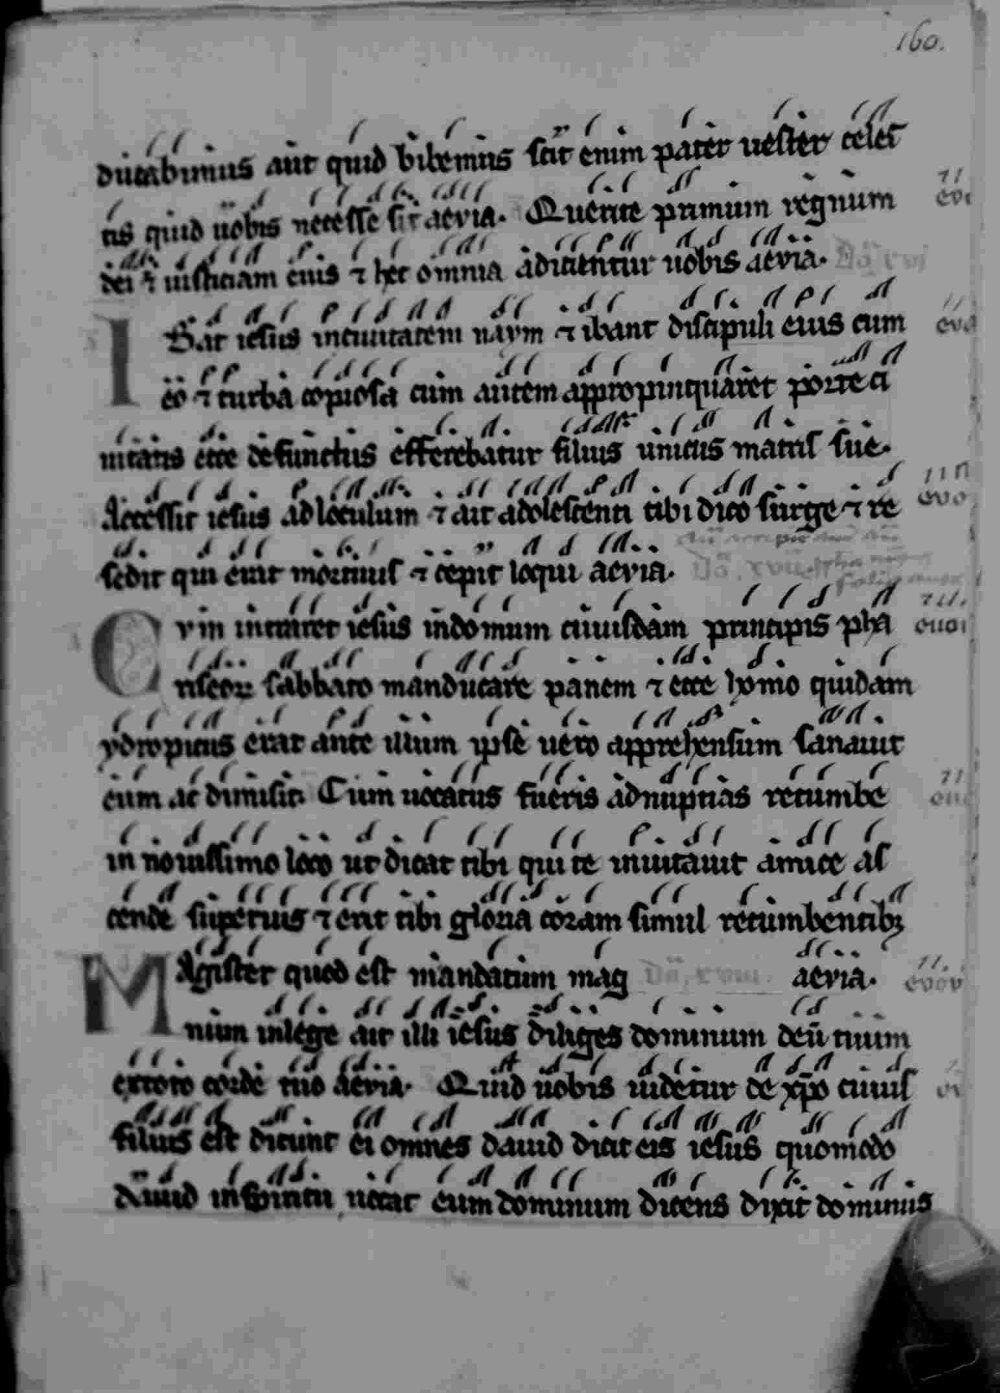 160.
ducabimus aut quid bibemus scit enim pater uester celes
tis quid uobis necesse sit aevia. Querite primum regnum
dei ⁊ iusticiam eius ⁊ hec omnia adicientur uobis aevia.
IBat iesus inciuitatem naym ⁊ ibant discipuli eius cum
eo ⁊ turba copiosa cum autem appropinquaret porte ci
uitatis ecce defunctus efferebatur filius unicus matris sue.
Accessit iesus ad loculum ⁊ ait adolescenti tibi dico surge ⁊ re
sedit qui erat mortuus ⁊ cepit loqui aevia.
Cvm intraret iesus indomum cuiusdam principis pha
riseoꝝ sabbato manducare panem ⁊ ecce homo quidam
ydropicus erat ante illum ipse uero apprehensum sanauit
eum ac dimisit. Cum uocatus fueris adnuptias recumbe
in nouissimo loco ut dicat tibi qui te inuitauit amice as
cende superius ⁊ erit tibi gloria coram simul recumbentibꝫ
MAgister quod est mandatum mag aevia.
num inlege ait illi iesus diliges dominum deū tuum
extoto corde tuo aevia. Quid uobis uidetur de xp̄o cuius
filius est dicunt ei omnes dauid dicit eis iesus quomodo
dauid inspiritu uocat eum dominum dicens dixit dominus